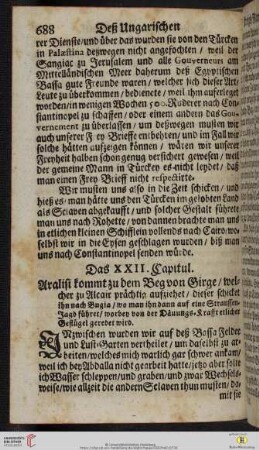 688 Deß Ungarischen
rer Dienste/und über das wurden sie von den Türcken
in Palæstina deßwegen nicht angefochten / weil der
Sangiac zu Jerusalem und alle Gouverneurs am
Mittelländischen Meer daherum deß Egyptischen
Bassa gute Freunde waren/ welcher sich dieser Art
Leute zu überkommen/ bediente/ weil ihm auferleget
worden/in wenigen Wochen 500. Ruderer nach Con-
stantinopel zu schaffen/ oder einem andern das Gou-
vernement zu überlassen/ und deßwegen musten wir
auch unserer Frey Brieffe entböhren/ und im Fall wir
solche hätten aufzeigen können/ wären wir unserer
Freyheit halben schon genug versichert gewesen/ weil
der gemeine Mann in Türckey es nicht leydet/ daß
man einen Frey Brieff nicht respectirte.
Wir musten uns also in die Zeit schicken/ und
hieß es/ man hätte uns den Türcken im gelobten Land
als Sclaven abgekaufft/ und solcher Gestalt führete
man uns nach Rohette/ von dannen brachte man uns
in etlichen kleinen Schifflein vollends nach Cairo/wo-
selbst wir in die Eysen geschlagen wurden / biß man
uns nach Constantinopel senden würde.
Das XXII. Capitul.
Aralisi kommt zu dem Beg von Girge / wel-
cher zu Alcair prächtig aufziehet/ dieser schicket
ihn nach Bugia/ wo man ihn dann auf eine Straussen-
Jagd führet/ worbey von der Däuungs-Krafft etlicher
Geflügel geredet wird.
INzwischen wurden wir auf deß Bassa Felder
und Lust-Garten vertheilet/ um daselbst zu ar-
beiten/welches mich warlich gar schwer ankam/
weil ich bey Abdalla nicht gearbeit hatte/jetzo aber solte
ich Wasser schleppen/und graben/und zwar Wechsels-
weise/wie allzeit die andern Sclaven thun musten/ da-
mit sie